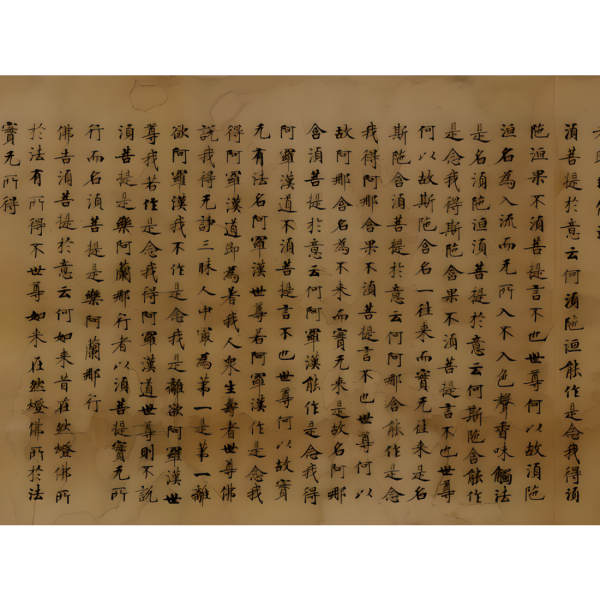 湏菩提於意云何湏陁洹能作是念我得湏
陁洹果不湏菩提言不也世尊何以故湏陁
洹名為入流而无所入不入色聲香味觸法
是名湏陁洹湏菩提於意云何斯陁含能作
是念我得斯陁含果不湏菩提言不也世尊
何以故斯陁含名一往来而實无往来是名
斯陁含湏菩提於意云何阿那含能作是念
我得阿那含果不湏菩提言不也世尊何以
故阿那含名為不来而實无来是故名阿那
含湏菩提於意云何阿羅漢能作是念我得
阿羅漢道不湏菩提言不也世尊何以故實
无有法名阿羅漢世尊若阿羅漢作是念我
得阿羅漢道即為著我人衆生壽者世尊佛
說我得无諍三昧人中冣為第一是第一離
欲阿羅漢我不作是念我是離欲阿羅漢世
尊我若作是念我得阿羅漢道世尊則不說
湏菩提是樂阿蘭那行者以湏菩提實无所
行而名湏菩提是樂阿蘭那行
佛告湏菩提於意云何如来昔在然燈佛所
於法有所得不世尊如来在然燈佛所於法
實无所得